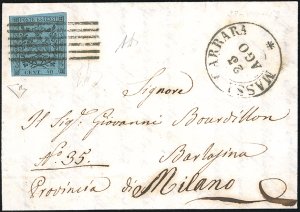 POSTE ESTENSI
CENT. 40
MASSA CARRARA
AGO
Signore
Il Sig. Giovanni Bourdillon
No 35.
Barlasina
Provincia di Milano